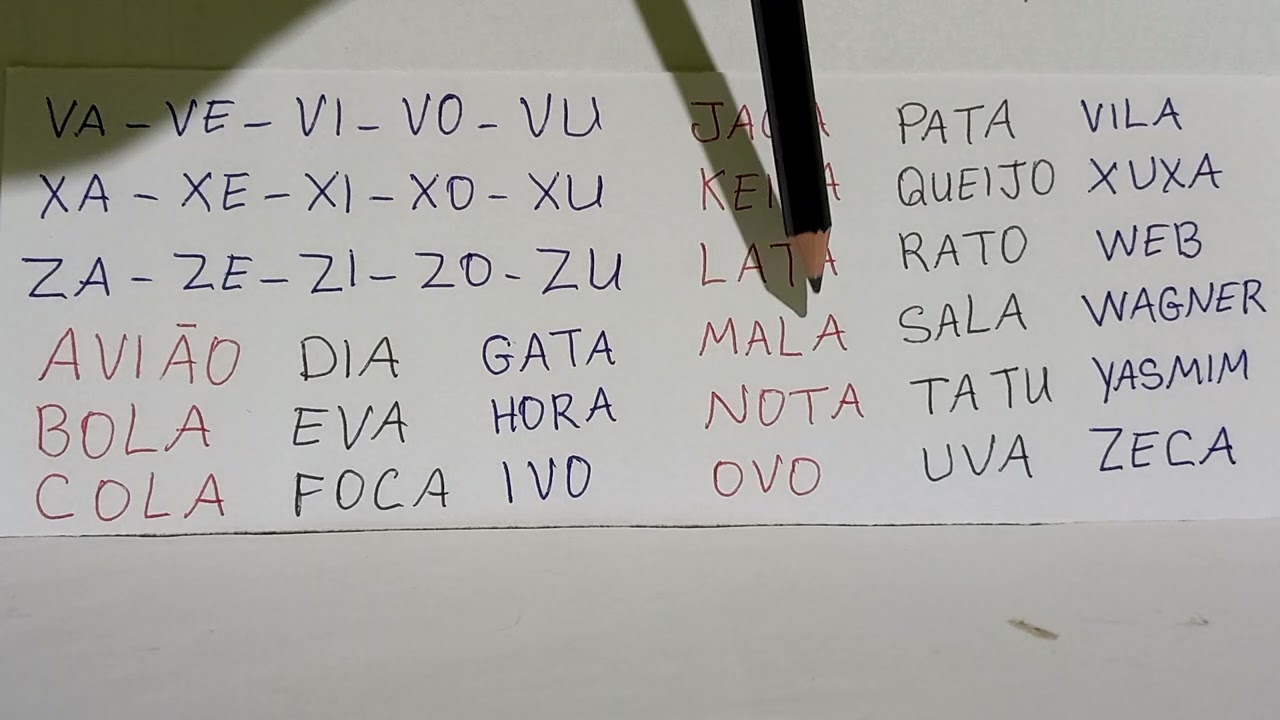 VA - VE - VI - VO - VU
XA - XE - XI - XO - XU
ZA - ZE - ZI - ZO - ZU
AVIÃO
BOLA
COLA
DIA
EVA
FOCA
GATA
HORA
IVO
LATA
MALA
NOTA
OVO
PATA
QUEIJO
RATO
SALA
TATU
UVA
VILA
XUXA
WEB
WAGNER
YASMIM
ZECA